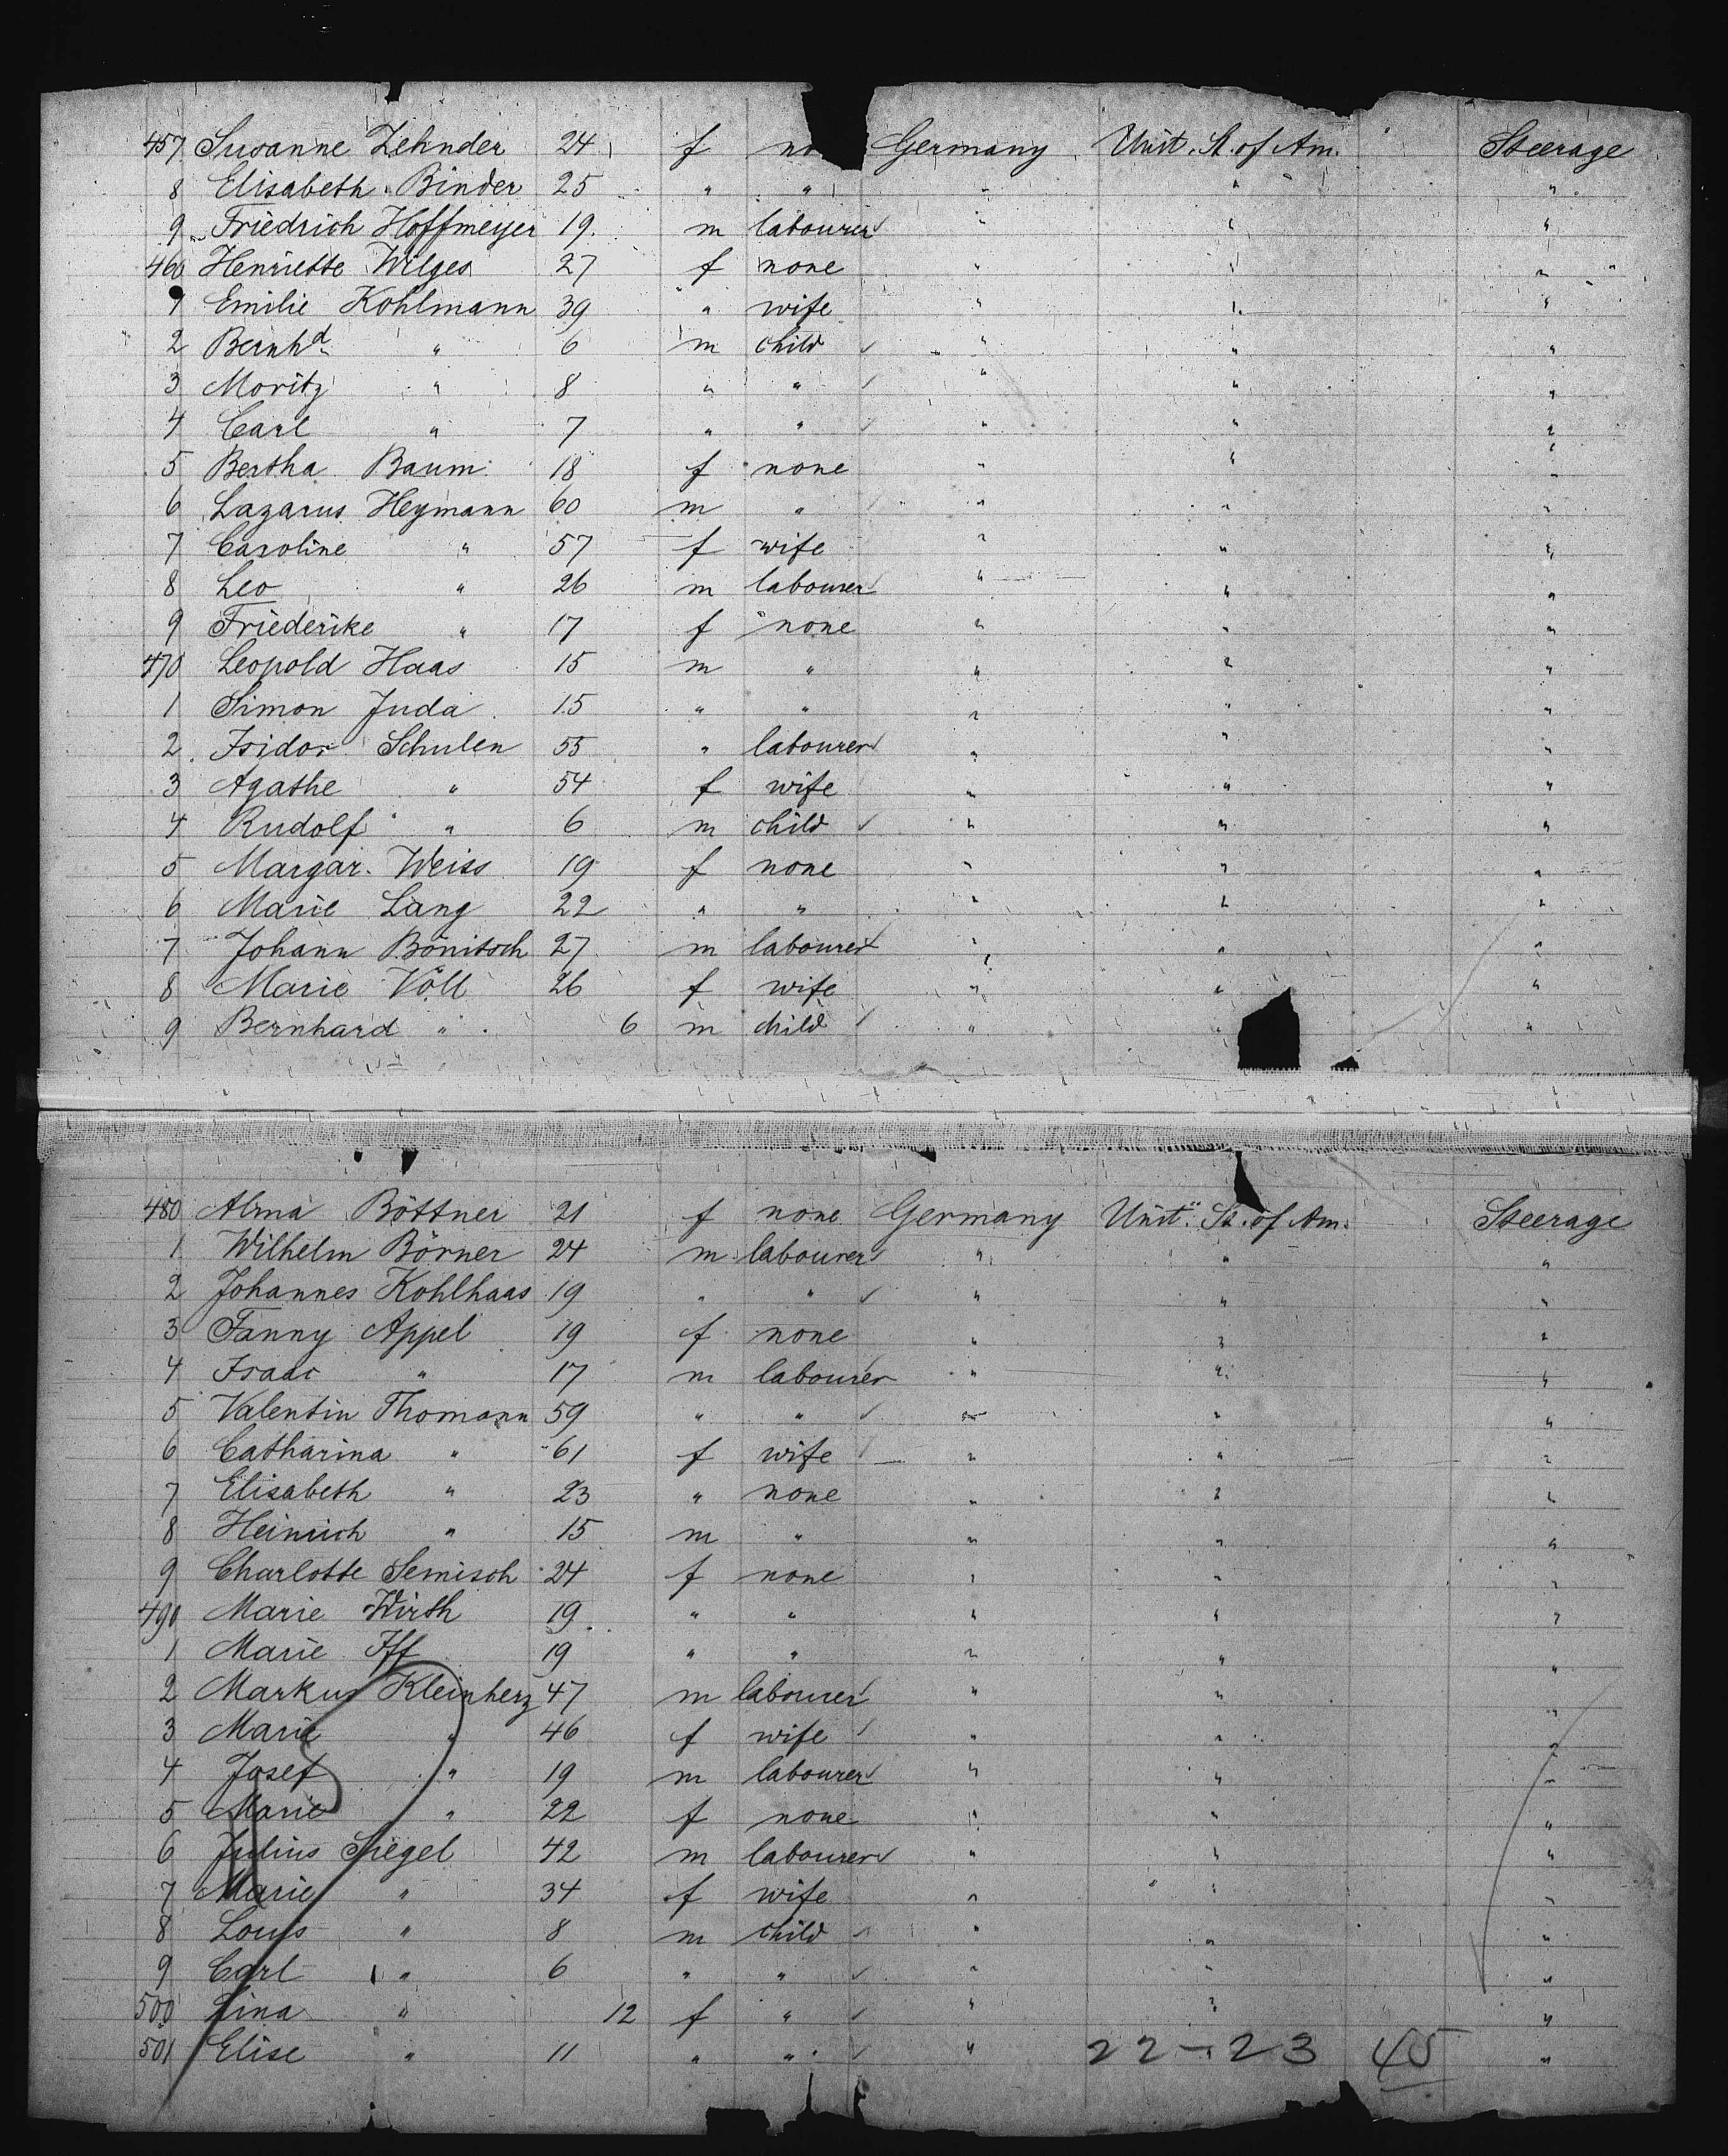 457 Susanne Zehnder 24 f no Germany Unit. St. of Am. Steerage
8 Elisabeth Binder 25 " " " " "
9 Friedrich Hoffmeyer 19. m labourer " " "
460 Henriette Wilges 27 f none " " "
1 Emilie Kohlmann 39 " wife " " "
2 Bernhd. " 6 m child " " "
3 Moritz " 8 " " " " "
4 Carl " 7 " " " " "
5 Bertha Baum 18 f none " " "
6 Lazarus Heymann 60 m " " " "
7 Caroline " 57 f wife " " "
8 Leo " 26 m labourer " " "
9 Friederike " 17 f none " " "
470 Leopold Haas 15 m " " " "
1 Simon Juda 15 " " " " "
2 Isidor Schulen 55 " labourer " " "
3 Agathe " 54 f wife " " "
4 Rudolf " 6 m child " " "
5 Margar. Weiss 19 f none " " "
6 Marie Lang 22 " " " " "
7 Johann Bönitsch 27 m labourer " " "
8 Marie Völl 26 f wife " " "
9 Bernhard " 6 m child " " "
480 Alma Böttner 21 f none Germany Unit. St. of Am. Steerage
1 Wilhelm Börner 24 m labourer " " "
2 Johannes Kohlhaas 19 " " " " "
3 Fanny Appel 19 f none " " "
4 Isaac " 17 m labourer " " "
5 Valentin Thomann 59 " " " " "
6 Catharina " 61 f wife " " "
7 Elisabeth " 23 " none " " "
8 Heinrich " 15 m " " " "
9 Charlotte Semisch 24 f none " " "
490 Marie Wirth 19 " " " " "
1 Marie Iff 19 " " " " "
2 Markus Kleinherz 47 m labourer " " "
3 Marie " 46 f wife " " "
4 Josef " 19 m labourer " " "
5 Marie " 22 f none " " "
6 Julius Siegel 42 m labourer " " "
7 Marie " 34 f wife " " "
8 Louis " 8 m child " " "
9 Carl " 6 " " " " "
500 Lina " 12 f " " " "
501 Elise " 11 " " " 22-23 45 "